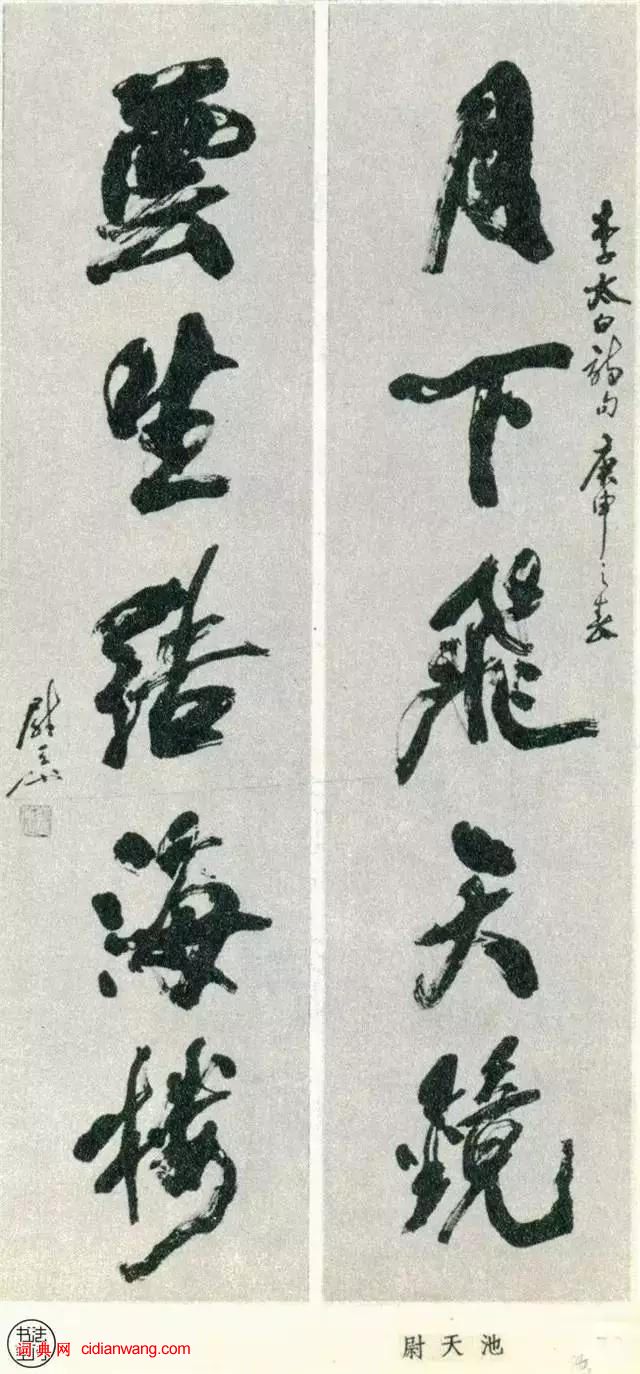 李太白詩句 庚申之春
月下飛天鏡
雲生結海楼
尉天池
尉天池
书法
词典网 cidianwang.com